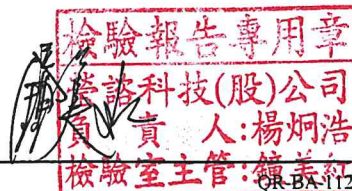 檢驗報告專用章
瑩諮科技(股)公司
負責人:楊炯浩
檢驗室主管:鐘美紅
QR-BA-112